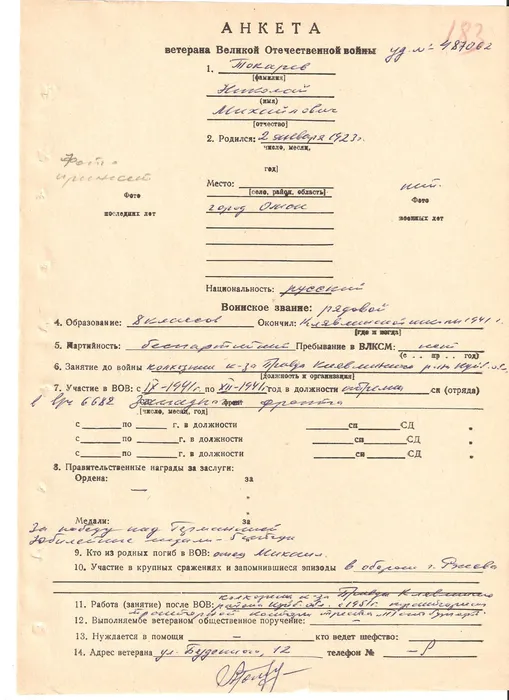 183
АНКЕТА
ветерана Великой Отечественной войны уд. № 487062
1. Токарев
(фамилия)
Николай
(имя)
Михайлович
(отчество)
2. Родился: 2 января 1923 г.
число, месяц,
год)
Фото
Фото
последних лет
Место:
(село, район, область)
город Омск
нет
Фото
военных лет
Национальность: русский
Воинское звание: рядовой
4. Образование: 8 классов Окончил: Клявлинской 1941 г.
(где и когда)
5. Партийность: беспартийный Пребывание в ВЛКСМ: нет
(с .. пр .. год)
6. Занятие до войны колхозник к-за Правда Клявлинского р-на
(должность и организация)
7. Участие в ВОВ: с IX-1941г. по XII-1941г год в должности стрелка сп (отряда)
в в/ч 6682 Западный фронта
(число, месяц, год)
с по г. в должности сп СД "
с по г. в должности сп СД "
с по г. в должности сп СД "
8. Правительственные награды за заслуги:
Ордена: за
— "
"
Медали: за
За победу над Германией
Юбилейные медали -
9. Кто из родных погиб в ВОВ: отец Михаил.
10. Участие в крупных сражениях и запомнившиеся эпизоды в обороне г. Ржева
колхозник к-за Правда Клявлинского
11. Работа (занятие) после ВОВ: района с 1951г.
треста
12. Выполняемое ветераном общественное поручение: —
13. Нуждается в помощи — кто ведет шефство:
14. Адрес ветерана ул. Буденного, 12 телефон № —